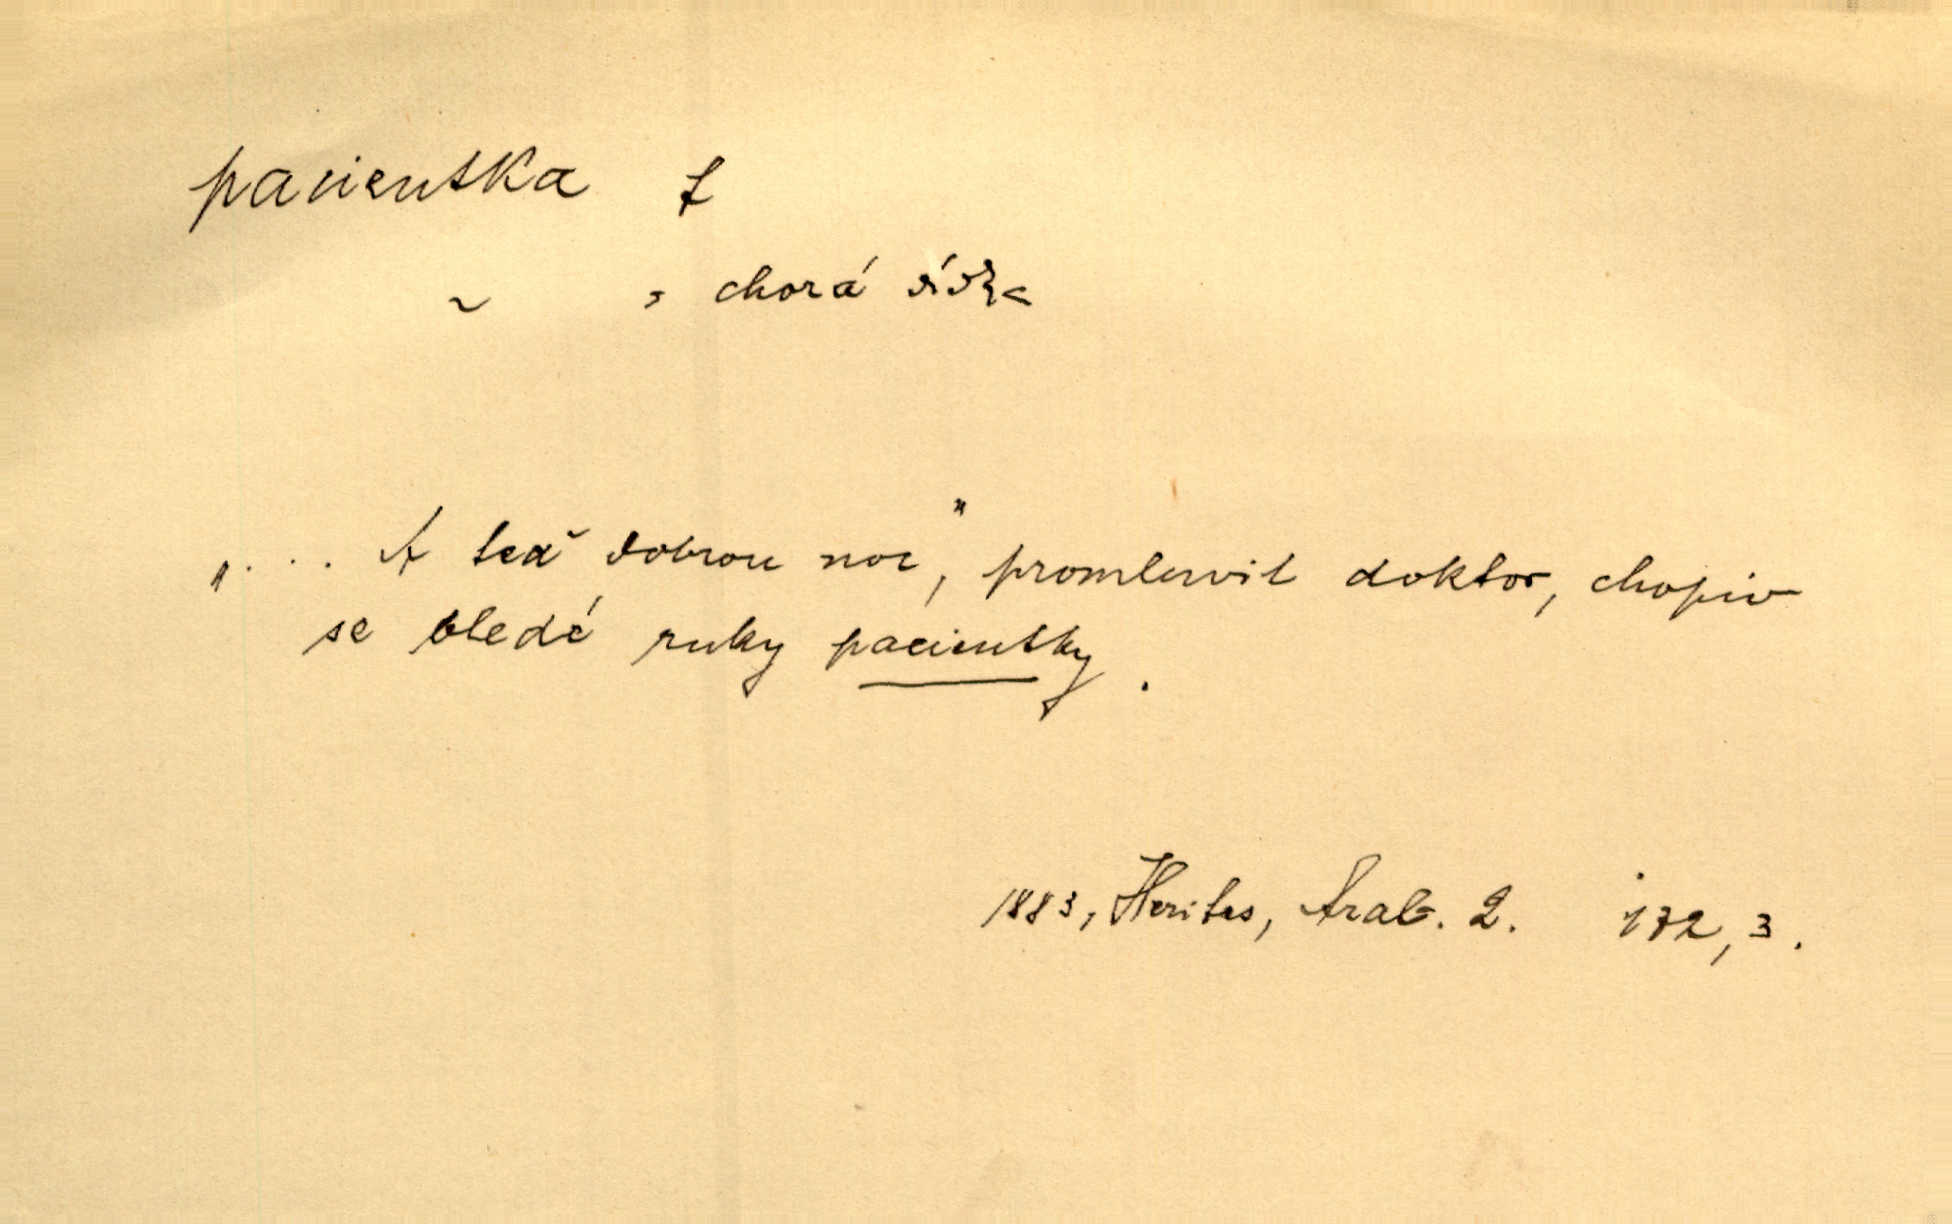 pacientka f
~ , chorá dívka
„... A teď dobrou noc," promluvil doktor, chopiv
se bledé ruky pacientky.
1883, Herites, Arab. 2. 172, 3.